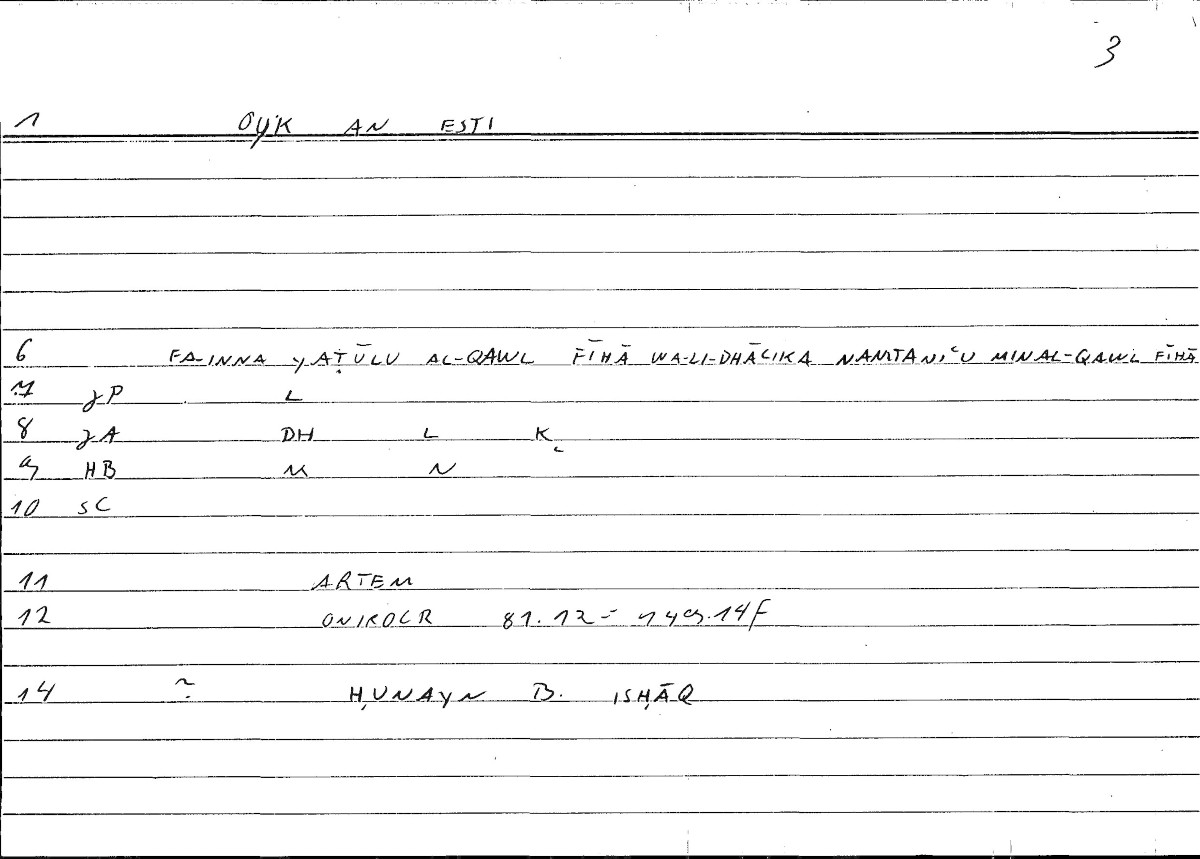 3
1 OYK AN ESTI
6 FA-INNA YAṬŪLU AL-QAWL FĪHĀ WA-LI-DHĀLIKA NAMTANIʿU MIN AL-QAWL FĪHĀ
7 JP L
8 JA DH L K
9 HB M N
10 SC
11 ARTEM
12 ONIROCR 81.12 = 149.14F
14 ḤUNAYN B. ISḤĀQ